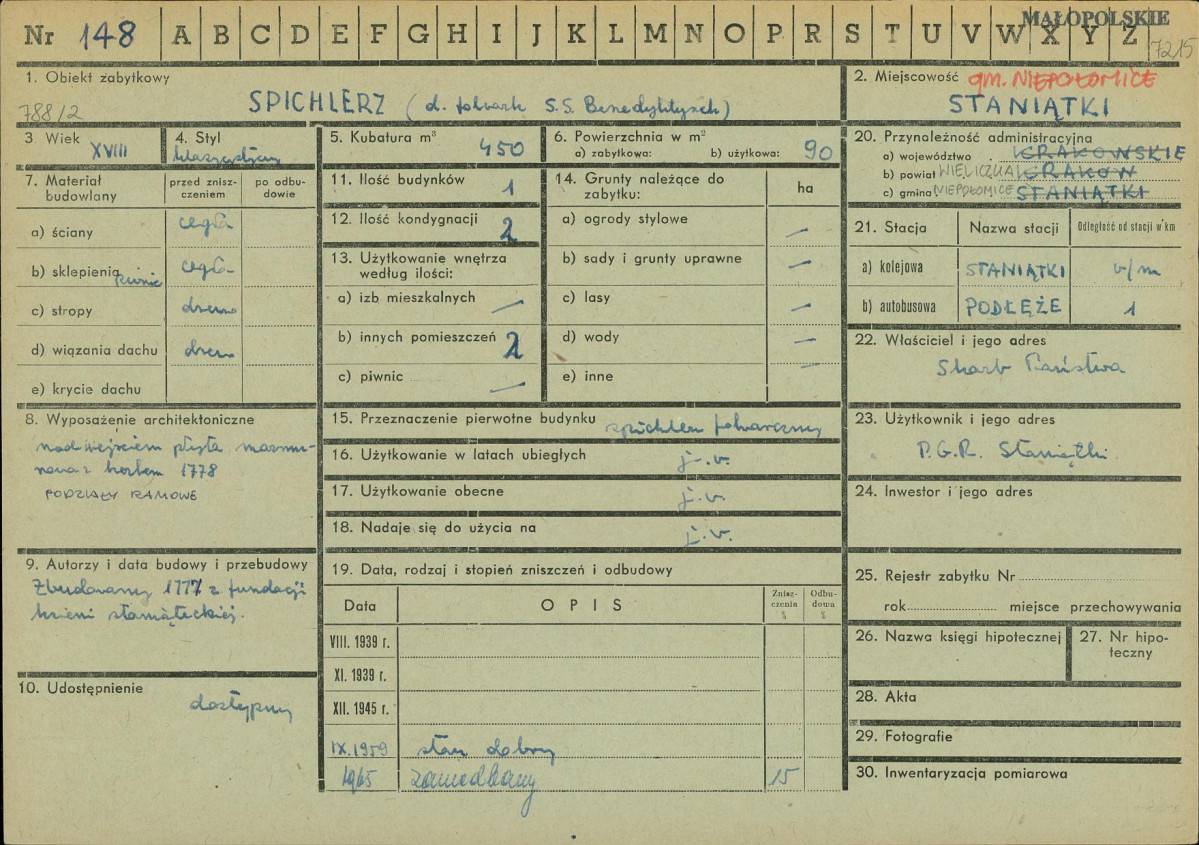 MAŁOPOLSKIE
Nr 148 A B C D E F G H I J K L M N O P R S T U V W X Y Z
7215
1. Obiekt zabytkowy
788/2
SPICHLERZ (d. folwark S.S. Benedyktynek)
2. Miejscowość gm. NIEPOŁOMICE
STANIĄTKI
3. Wiek XVIII
4. Styl
5. Kubatura m³ 450
6. Powierzchnia w m²
a) zabytkowa: b) użytkowa: 90
7. Materiał budowlany
przed zniszczeniem
po odbudowie
a) ściany cegła
b) sklepienia piwnic cegła
c) stropy drewno
d) wiązania dachu drewno
e) krycie dachu
8. Wyposażenie architektoniczne
nad wejściem płyta marmu-
rowa z herbem 1778
PODZIAŁY RAMOWE
9. Autorzy i data budowy i przebudowy
Zbudowany 1777 z fundacji
ksieni staniąteckiej.
10. Udostępnienie
dostępny
11. Ilość budynków 1
12. Ilość kondygnacji 2
13. Użytkowanie wnętrza
według ilości:
a) izb mieszkalnych —
b) innych pomieszczeń 2
c) piwnic —
14. Grunty należące do
zabytku:
ha
a) ogrody stylowe —
b) sady i grunty uprawne —
c) lasy —
d) wody —
e) inne —
15. Przeznaczenie pierwotne budynku spichlerz folwarczny
16. Użytkowanie w latach ubiegłych j.w.
17. Użytkowanie obecne j.w.
18. Nadaje się do użycia na j.w.
19. Data, rodzaj i stopień zniszczeń i odbudowy
Data OPIS Zniszczenia % Odbudowa %
VIII. 1939 r.
XI. 1939 r.
XII. 1945 r.
IX.1959 stan dobry
1965 zaniedbany 15
20. Przynależność administracyjna
a) województwo KRAKOWSKIE
b) powiat WIELICZKA KRAKÓW
c) gmina NIEPOŁOMICE STANIĄTKI
21. Stacja Nazwa stacji Odległość od stacji w km
a) kolejowa STANIĄTKI v/m
b) autobusowa PODŁĘŻE 1
22. Właściciel i jego adres
Skarb Państwa
23. Użytkownik i jego adres
P.G.R. Staniątki
24. Inwestor i jego adres
25. Rejestr zabytku Nr
rok miejsce przechowywania
26. Nazwa księgi hipotecznej
27. Nr hipo-
teczny
28. Akta
29. Fotografie
30. Inwentaryzacja pomiarowa